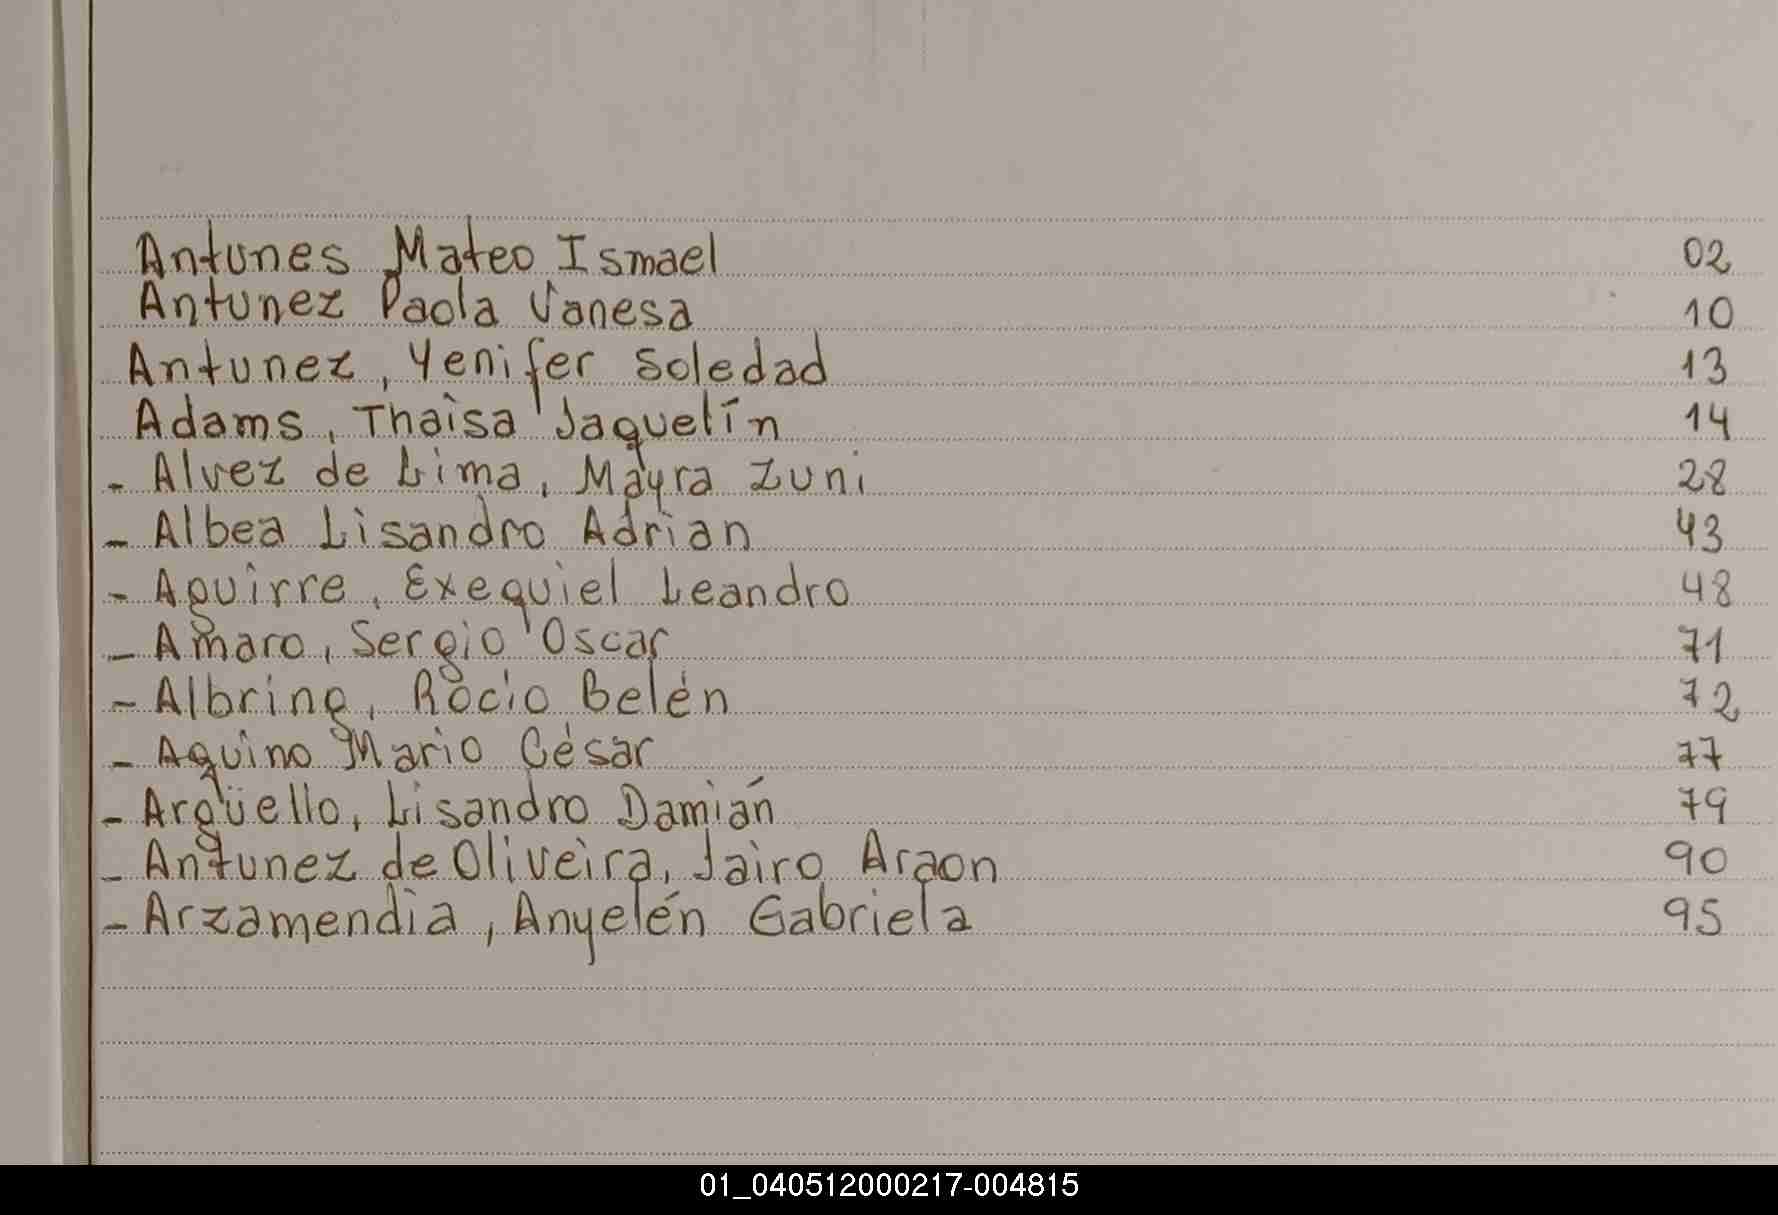 Antunes Mateo Ismael 02
Antunez Paola Vanesa 10
Antunez, Yenifer Soledad 13
Adams, Thaisa Jaquelín 14
- Alvez de Lima, Mayra Zuni 28
- Albea Lisandro Adrian 43
- Aguirre, Exequiel Leandro 48
- Amaro, Sergio Oscar 71
- Albring, Rocio Belén 72
- Aquino Mario César 77
- Argüello, Lisandro Damián 79
- Antunez de Oliveira, Jairo Araon 90
- Arzamendia, Anyelén Gabriela 95
01_040512000217-004815